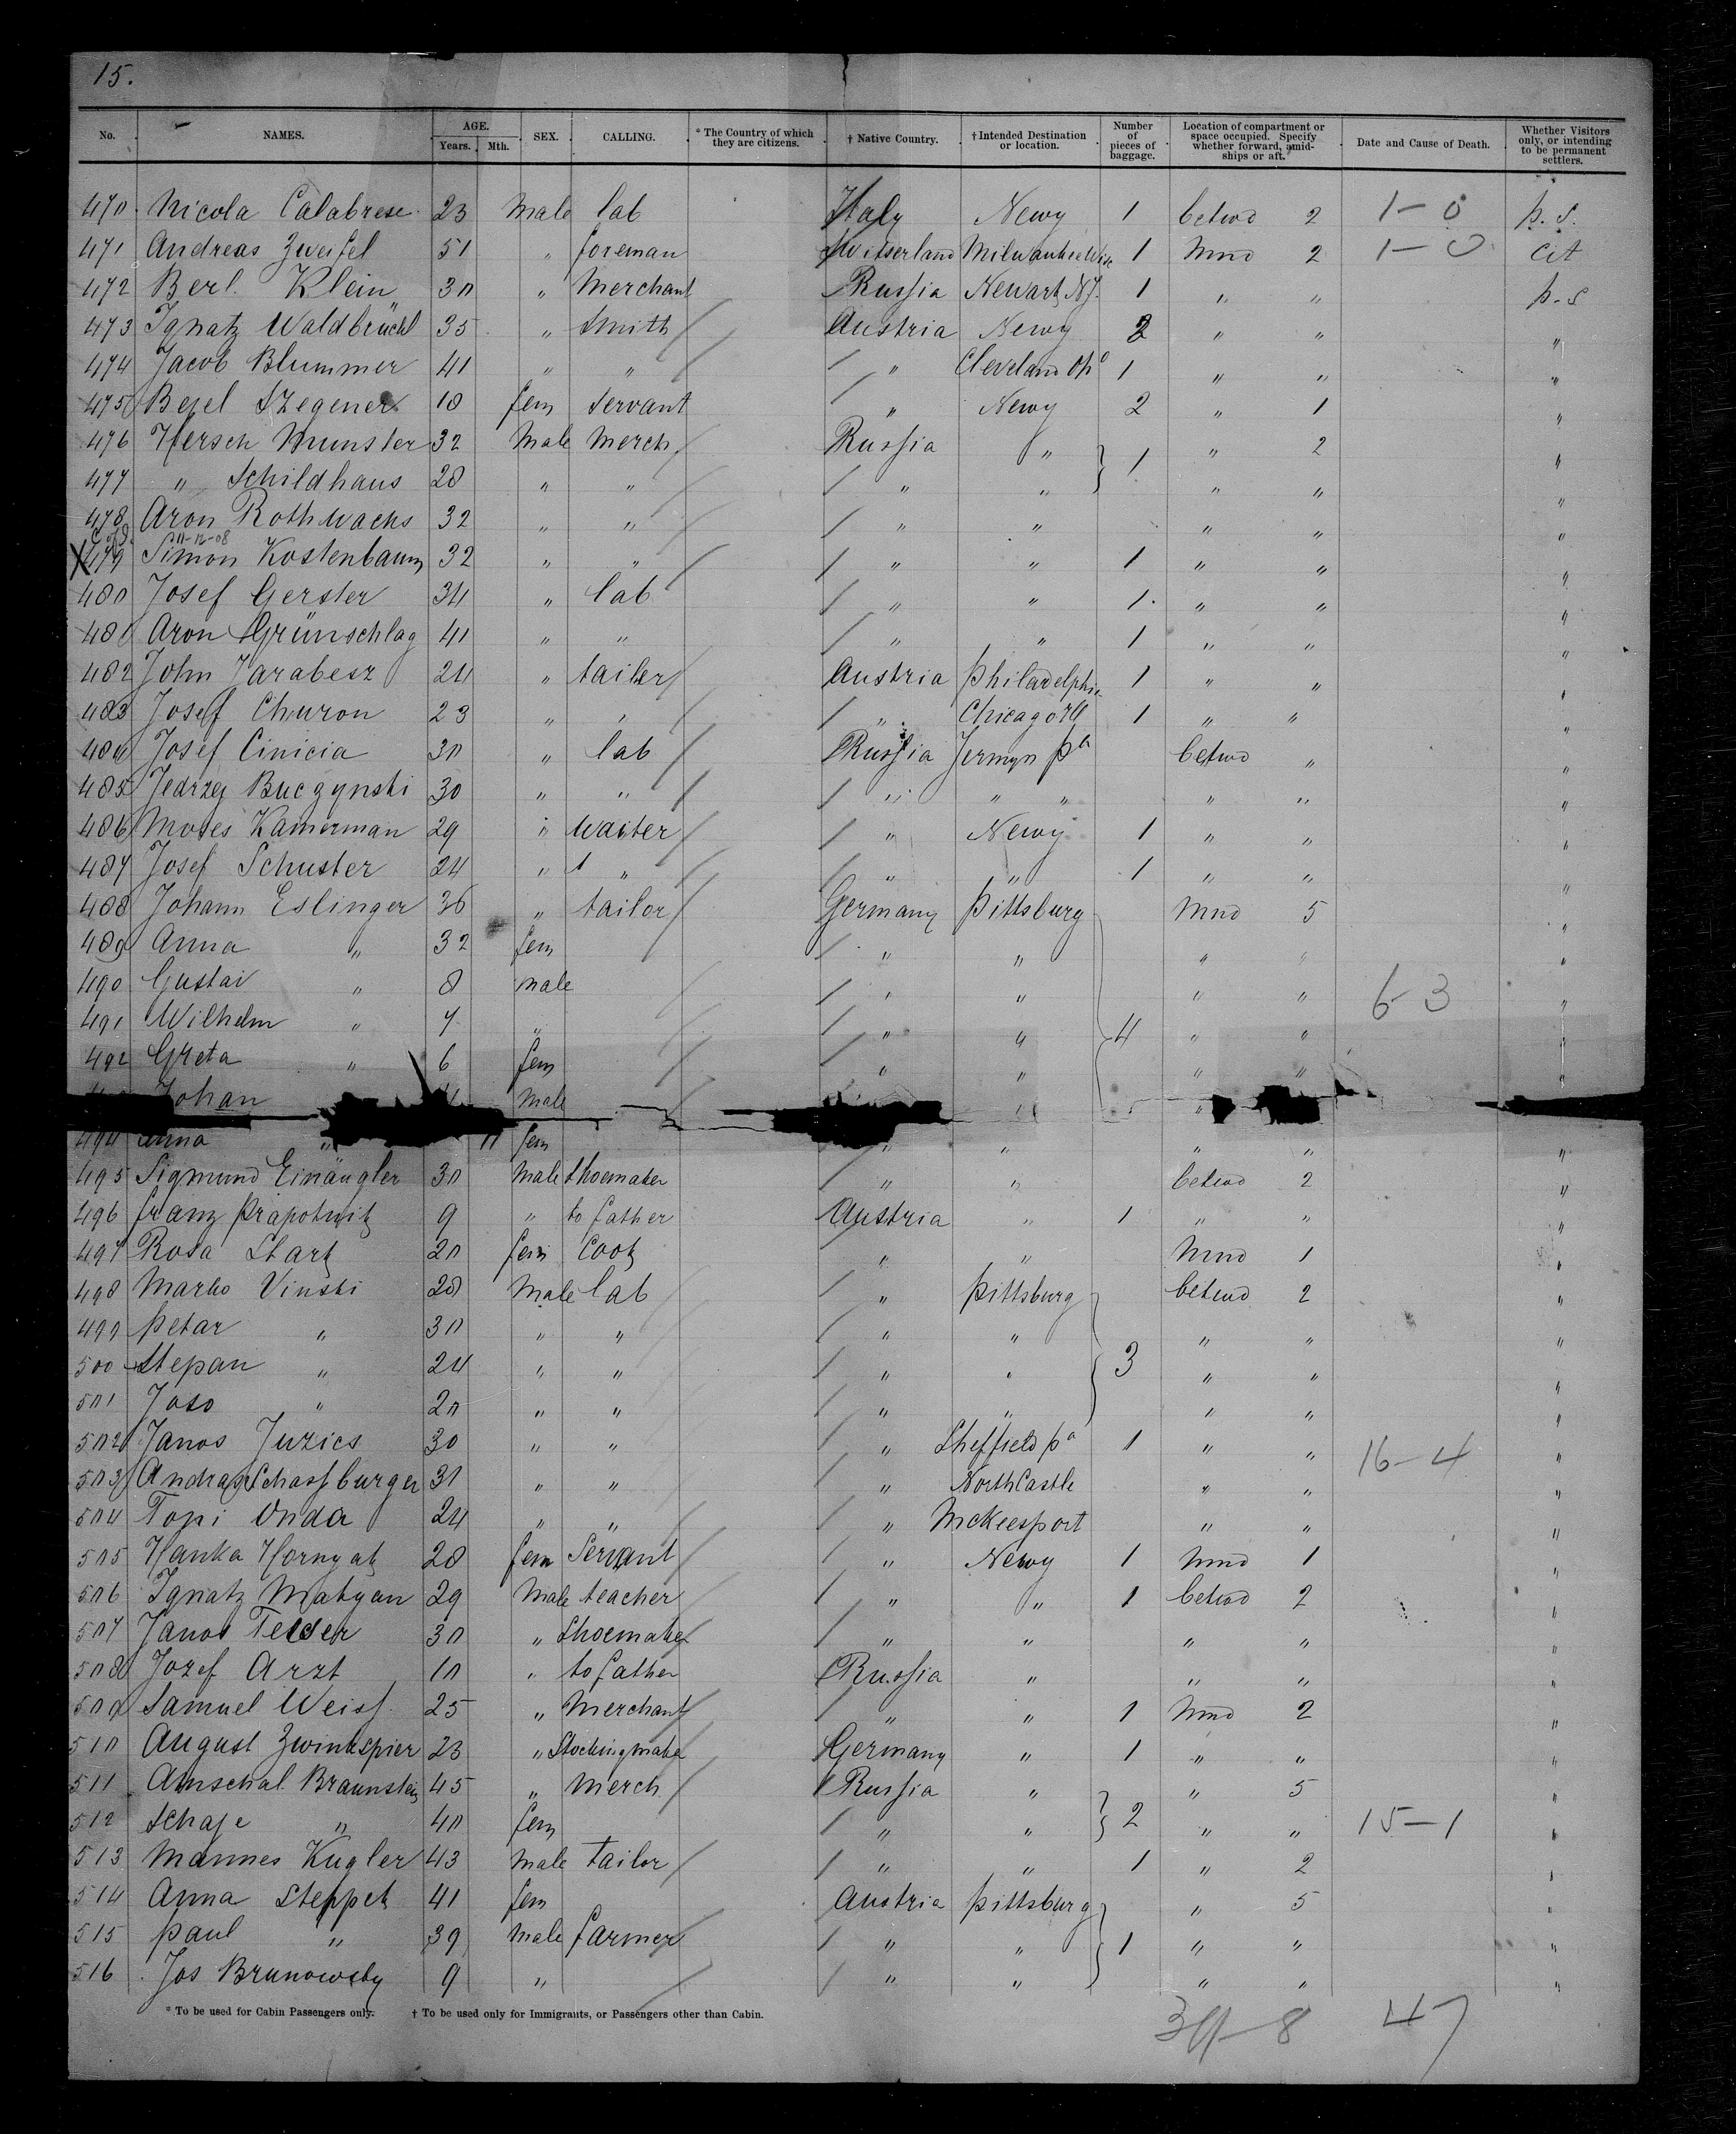 15.
No. NAMES. AGE. Years. Mth. SEX. CALLING. * The Country of which they are citizens. † Native Country. † Intended Destination or location. Number of pieces of baggage. Location of compartment or space occupied. Specify whether forward, amidships or aft. Date and Cause of Death. Whether Visitors only, or intending to be permanent settlers.
470 Nicola Calabrese 23 Male lab Italy Newy 1 betwd 2 1-0 p.s.
471 Andreas Zweifel 51 " foreman Switserland Milwaukee Wisc 1 mnd 2 1-0 cit
472 Berl Klein 30 " Merchant Russia Newark N.J. 1 " " p.s
473 Ignatz Waldbrückl 35 " Smith Austria Newy 2 " " "
474 Jacob Blummer 41 " " " Cleveland Oho 1 " " "
475 Besel Szegener 18 fem Servant " Newy 2 " 1 "
476 Hersch Munster 32 Male Merch. Russia " 1 " 2 "
477 " Schildhaus 28 " " " " " " "
478 Aron Rothwachs 32 " " " " " " "
11-12-08
X 479 Simon Kostenbaum 32 " " " " 1 " " "
480 Josef Gerster 34 " lab " " 1 " " "
481 Aron Grünschlag 41 " " " " 1 " " "
482 John Jarabesz 24 " tailer Austria Philadelphia 1 " " "
483 Josef Churon 23 " " " Chicago Ill 1 " " "
484 Josef Cinicia 30 " lab Russia Jermyn Pa betwd " "
485 Jedrzej Buczynski 30 " " " " " " " "
486 Moses Kamerman 29 " Waiter " Newy 1 " " "
487 Josef Schuster 24 " " " " 1 " " "
488 Johann Eslinger 36 " tailor Germany Pittsburg mnd 5 "
489 Anna " 32 fem " " " " "
490 Gustav " 8 male " " " " 6-3 "
491 Wilhelm " 7 " " " 4 " " "
492 Greta " 6 fem " " " " "
Johan Male " "
494 Anna " 11 fem " " " " "
495 Sigmund Einäugler 30 Male Shoemaker " " betwd 2 "
496 Franz Prapotnik 9 " to father Austria " 1 " " "
497 Rosa Stark 20 fem Cook " " mnd 1 "
498 Marko Vinski 28 Male lab " Pittsburg betwd 2 "
499 Petar " 30 " " " " " " "
500 Stepan " 24 " " " " 3 " " "
501 Joso " 20 " " " " " " "
502 Janos Juzics 30 " " " Sheffield Pa 1 " " 16-4 "
503 Andras Schassburger 31 " " " North Castle " " "
504 Topi Onda 24 " " " McKeesport " " "
505 Hanka Hornyak 28 fem Servant " Newy 1 mnd 1 "
506 Ignatz Matyan 29 Male teacher " " 1 betwd 2 "
507 Janos Telser 30 " Shoemaker " " " " "
508 Jozef Arzt 10 " to father Russia " " " "
509 Samuel Weiss 25 " Merchant " " 1 mnd 2 "
510 August Zwinkspier 23 " Stockingmaker Germany " 1 " " "
511 Amschal Braunstein 45 " Merch Russia " " 5 "
512 Schaje " 40 fem " " 2 " " 15-1 "
513 Mannes Kugler 43 Male Tailor " " 1 " 2 "
514 Anna Steppek 41 fem Austria Pittsburg " 5 "
515 Paul " 39 Male farmer " " 1 " " "
516 Jos Brunowsky 9 " " " " " "
* To be used for Cabin Passengers only. † To be used only for Immigrants, or Passengers other than Cabin.
39-8 47